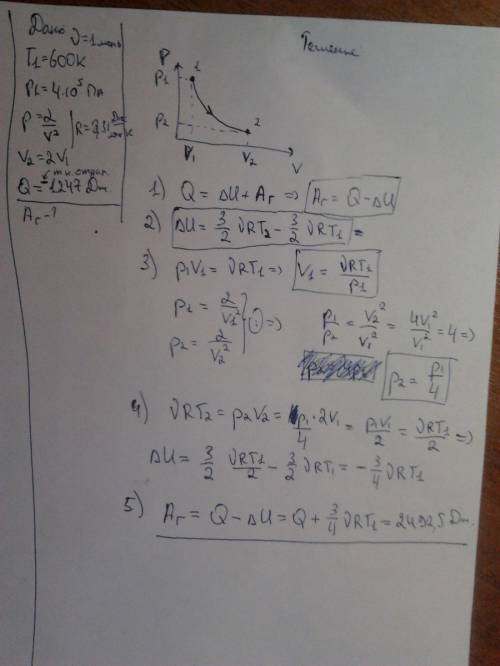 Дано
ν = 1 моль
T₁ = 600 К
P₁ = 4·10⁵ Па
P = 2/V²
R = 8,31 Дж/моль К
V₂ = 2V₁
т.к. отдал.
Q = -1247 Дж
Aг - ?
Решение
P
P₁
1
P₂
2
V₁
V₂
V
1) Q = ΔU + Aг => Aг = Q - ΔU
2) ΔU = 3/2 νRT₂ - 3/2 νRT₁ =
3) P₁V₁ = νRT₁ => V₁ = νRT₁/P₁
P₁ = 2/V₁²
P₂ = 2/V₂²
(:) =>
P₁/P₂ = V₂²/V₁² = 4V₁²/V₁² = 4 =>
P₂ = P₁/4
4) νRT₂ = P₂V₂ = P₁/4 · 2V₁ = P₁V₁/2 = νRT₁/2 =>
ΔU = 3/2 νRT₁/2 - 3/2 νRT₁ = - 3/4 νRT₁
5) Aг = Q - ΔU = Q + 3/4 νRT₁ = 2492,5 Дж.